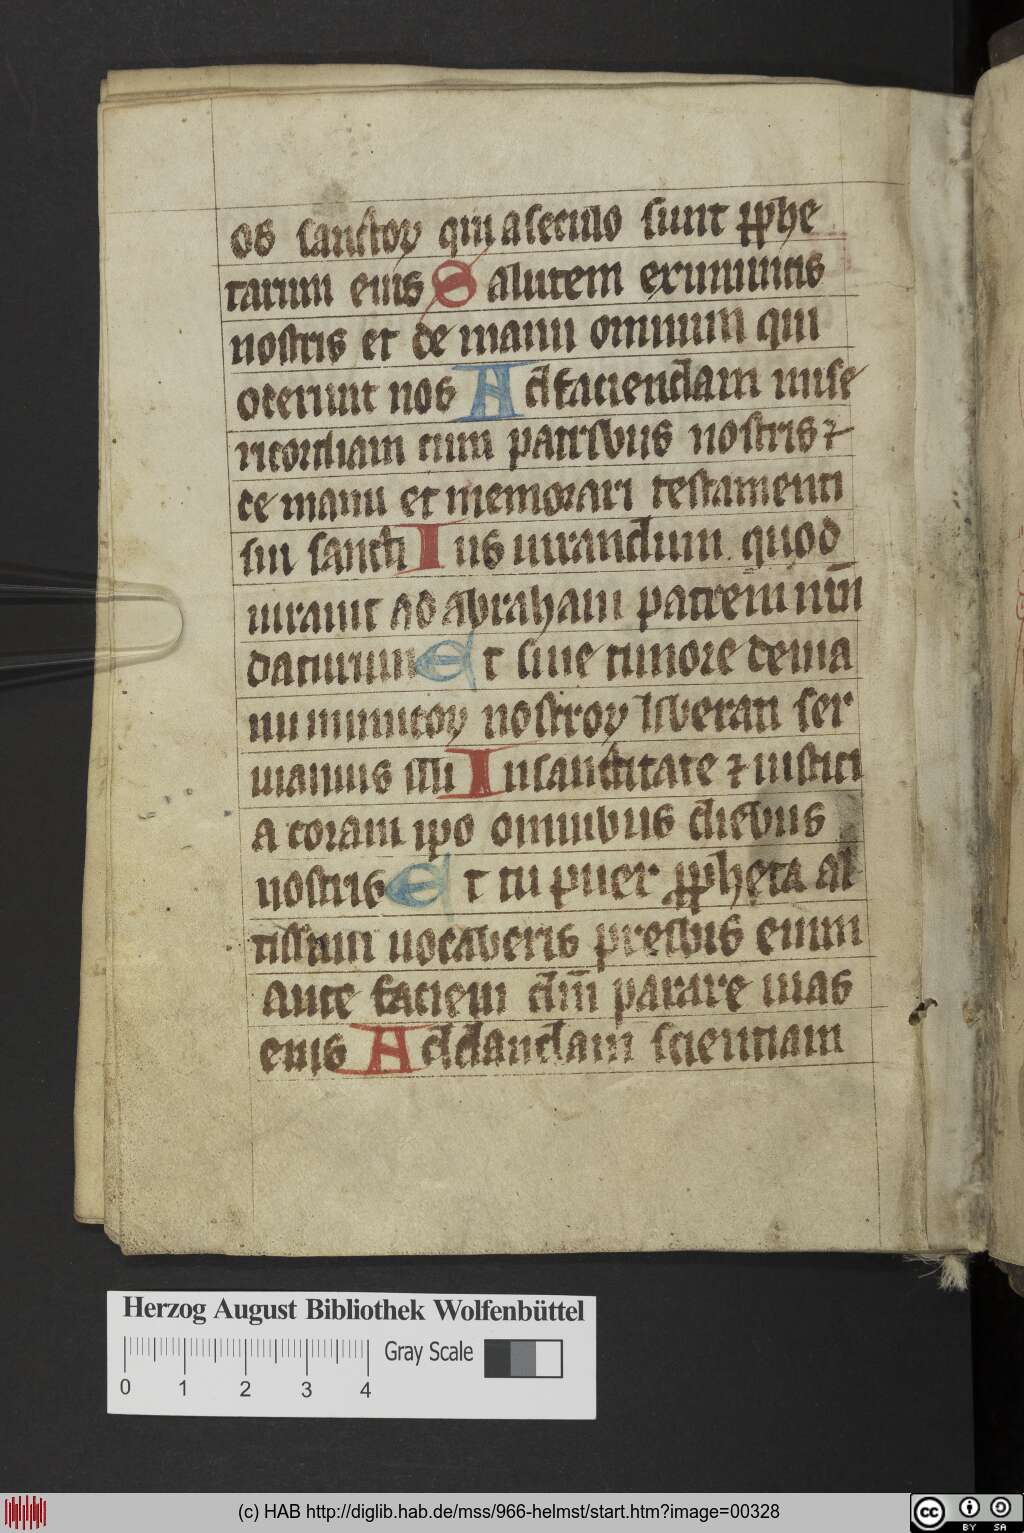 os sanctoꝝ qui a seculo sunt ꝓphe
tarum eius Salutem ex inimicis
nostris et de manu omnium qui
oderunt nos Ad faciendam mise
ricordiam cum patribus nostris ⁊
de manu et memorari testamenti
sui sancti Ius iurandum quod
iurauit ad abraham patrem nr̄m
daturum Et sine timore de ma
nu inimicoꝝ nostroꝝ liberati ser
uiamus illi In sanctitate ⁊ iustici
a coram ipo omnibus diebus
nostris Et tu puer ꝓpheta al
tissimi uocaberis preibis enim
ante faciem dm̄ parare uias
eius Ad dandam scientiam
Herzog August Bibliothek Wolfenbüttel
Gray Scale
0 1 2 3 4
(c) HAB http://diglib.hab.de/mss/966-helmst/start.htm?image=00328
cc BY SA